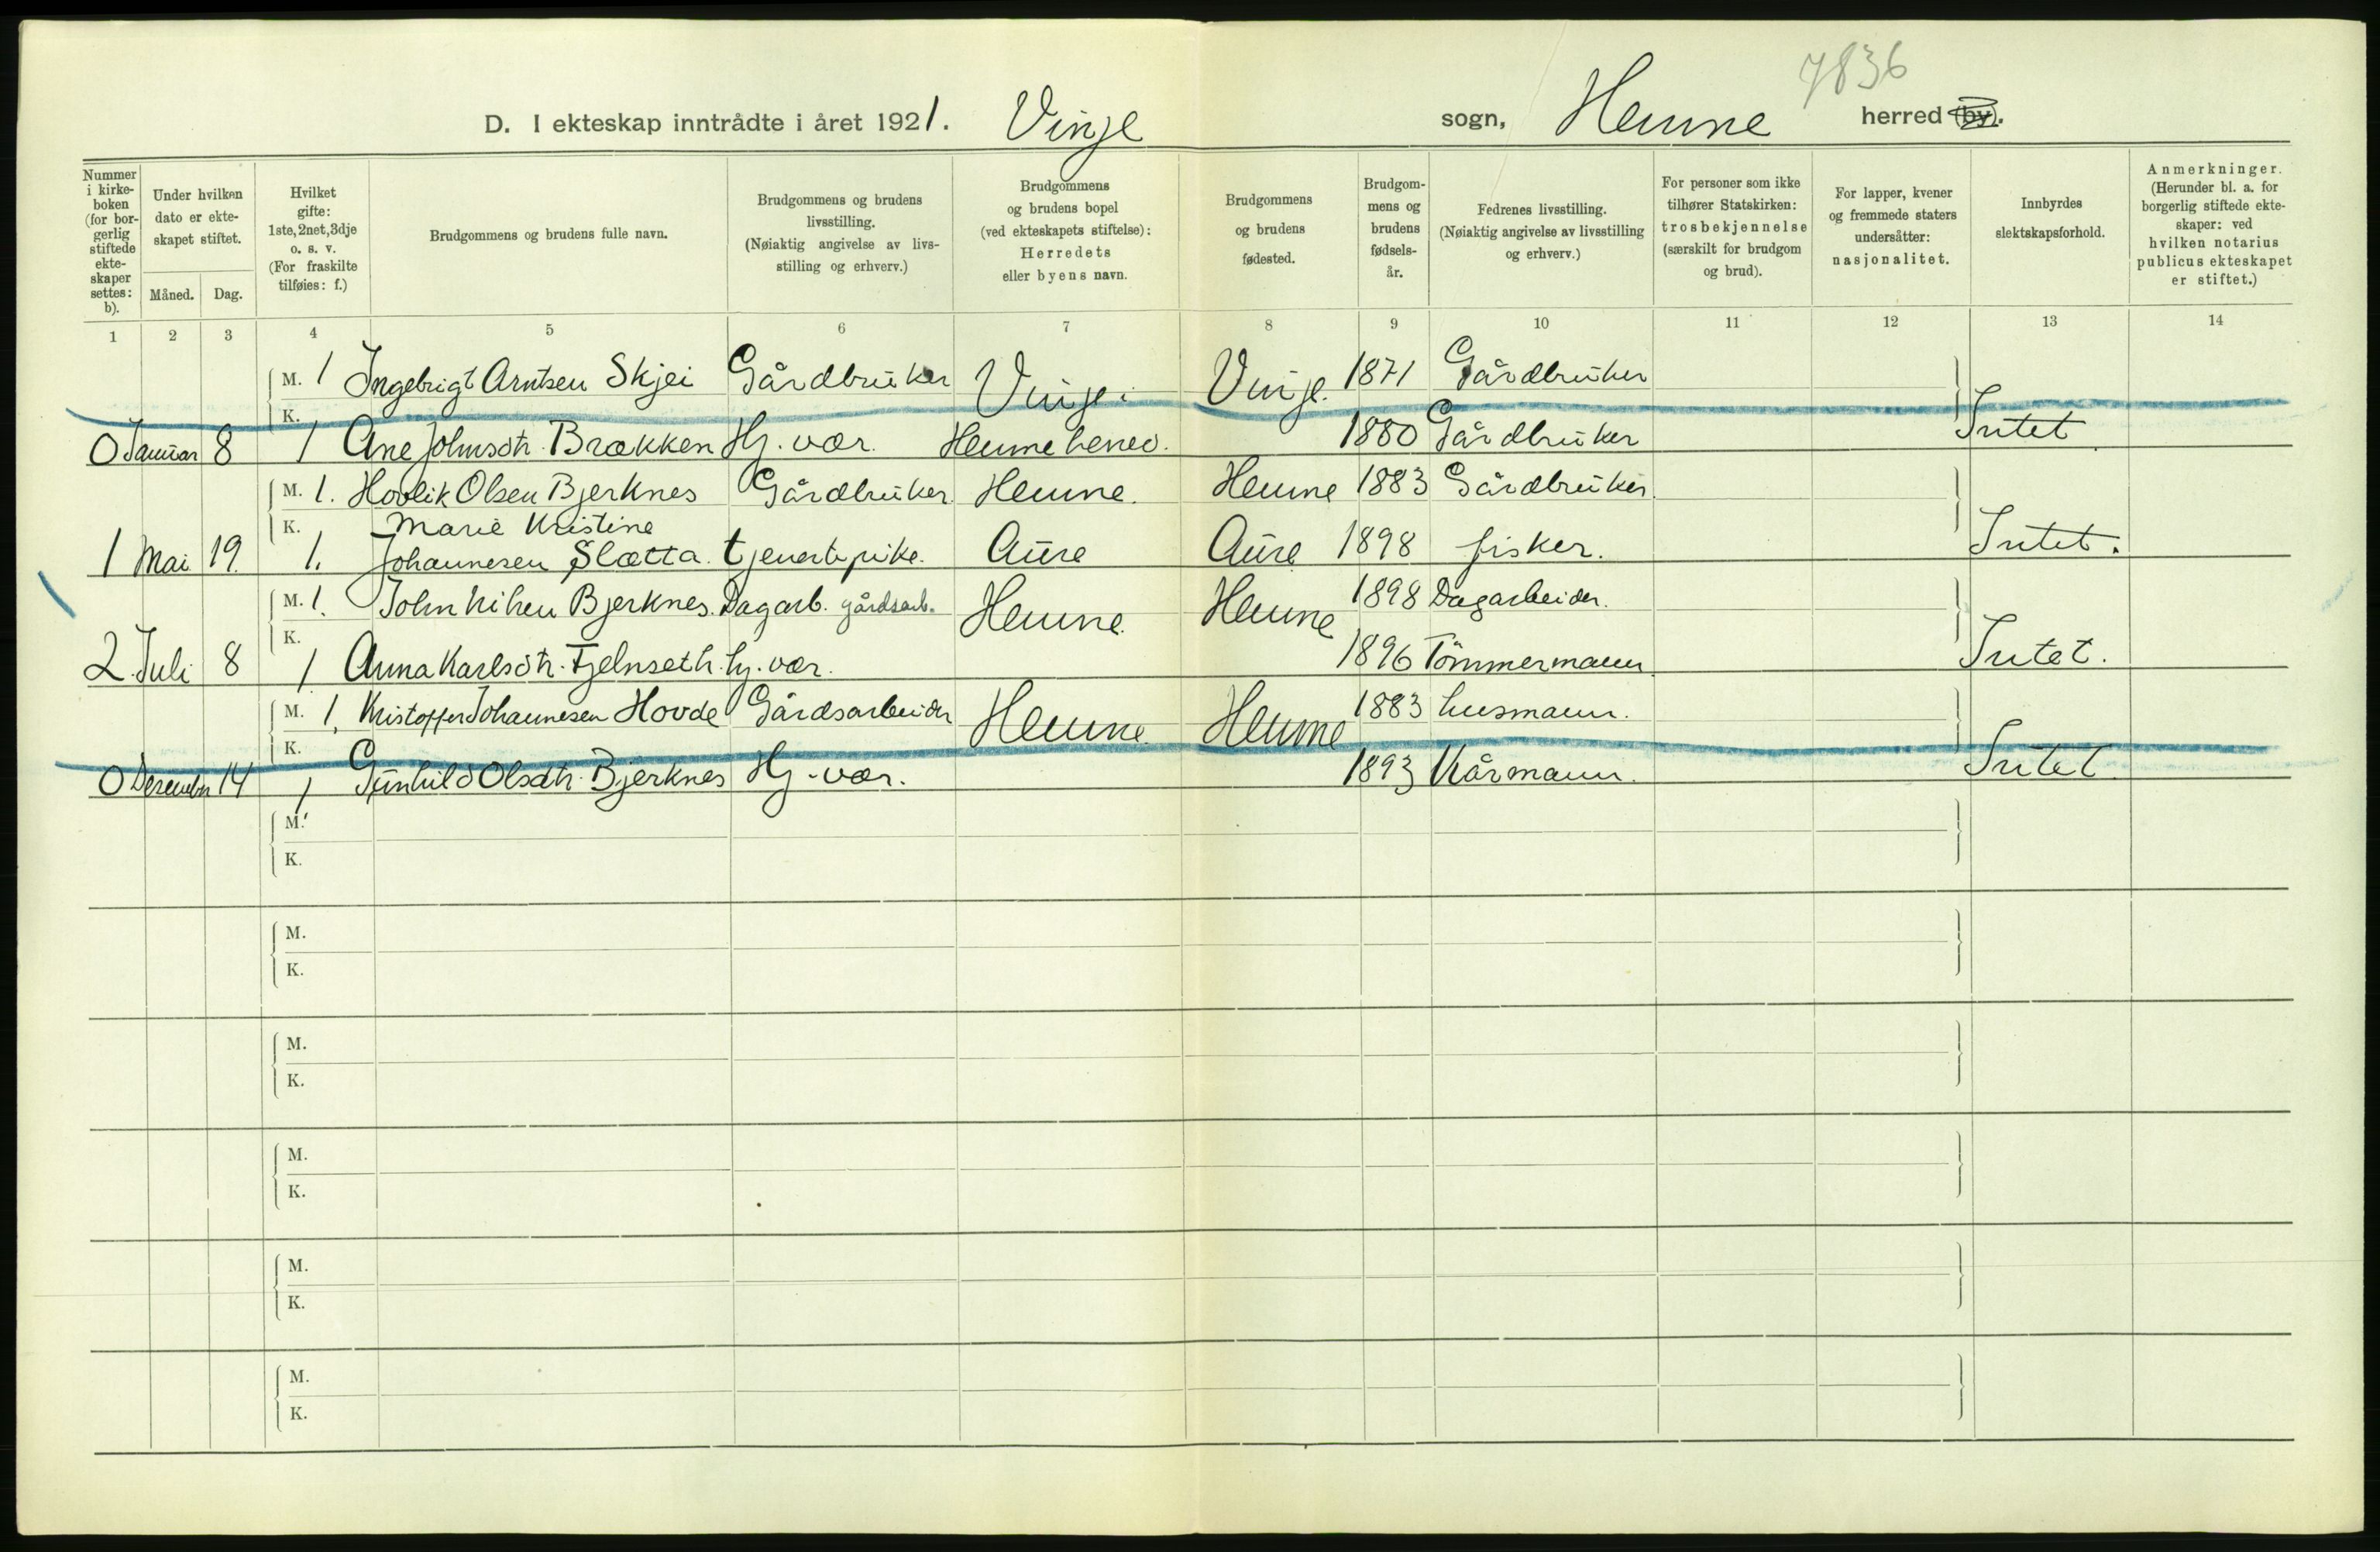 7836
D. I ekteskap inntrådte i året 1921. Vinje sogn, Hemne herred (by).
Nummer i kirke- boken (for bor- gerlig stiftede ekte- skaper settes: b).
Under hvilken dato er ekte- skapet stiftet.
Måned. Dag.
Hvilket gifte: 1ste, 2net, 3dje o. s. v. (For fraskilte tilføies: f.)
Brudgommens og brudens fulle navn.
Brudgommens og brudens livsstilling. (Nøiaktig angivelse av livs- stilling og erhverv.)
Brudgommens og brudens bopel (ved ekteskapets stiftelse): Herredets eller byens navn.
Brudgommens og brudens fødested.
Brudgom- mens og brudens fødsels- år.
Fedrenes livsstilling. (Nøiaktig angivelse av livsstilling og erhverv.)
For personer som ikke tilhører Statskirken: trosbekjennelse (særskilt for brudgom og brud).
For lapper, kvener og fremmede staters undersåtter: nasjonalitet.
Innbyrdes slektskapsforhold.
Anmerkninger. (Herunder bl. a. for borgerlig stiftede ekte- skaper: ved hvilken notarius publicus ekteskapet er stiftet.)
1 2 3 4 5 6 7 8 9 10 11 12 13 14
M. 1 Ingebrigt Arntsen Skjei Gårdbruker Vinje i Vinje. 1871 Gårdbruker
K.
0 Januar 8 1 Ane Johnsdtr. Brækken Hj. vær. Hemne herred. 1880 Gårdbruker Intet
M. 1. Hovlik Olsen Bjerknes Gårdbruker Hemne. Hemne 1883 Gårdbruker.
K. Marie Kristine
1 Mai 19. 1. Johannesen Slætta. tjenestepike. Aure Aure 1898 fisker. Intet.
M. 1. John Bjerknes. Dagarb. gårdsarb. Hemne. Hemne 1898 Dagarbeider.
K.
2. Juli 8 1 Anna Karlsdtr. Fjelnseth. hj. vær. 1896 Tömmermann. Intet.
M. 1. Kristoffer Johannesen Hovde Gårdsarbeider Hemne. Hemne 1883 husmann.
K.
0 Desember 14 1 Gunhild Olsdtr. Bjerknes Hj. vær. 1893 Kårmann. Intet.
M.
K.
M.
K.
M.
K.
M.
K.
M.
K.
M.
K.